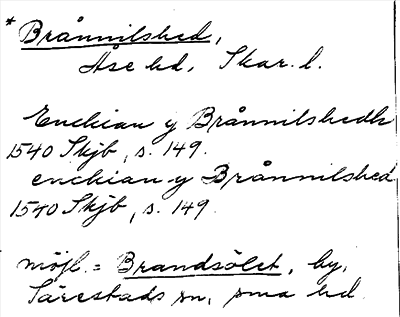 * Brånnilshed,
Åse hd, Skar. l.
Enckian y Brånnilshedh
1540 Skjb, s. 149.
enckian y Brånnilshed
1540 Skjb, s. 149.
möjl. = Brandsölet, by,
Särestads sn, sma hd.